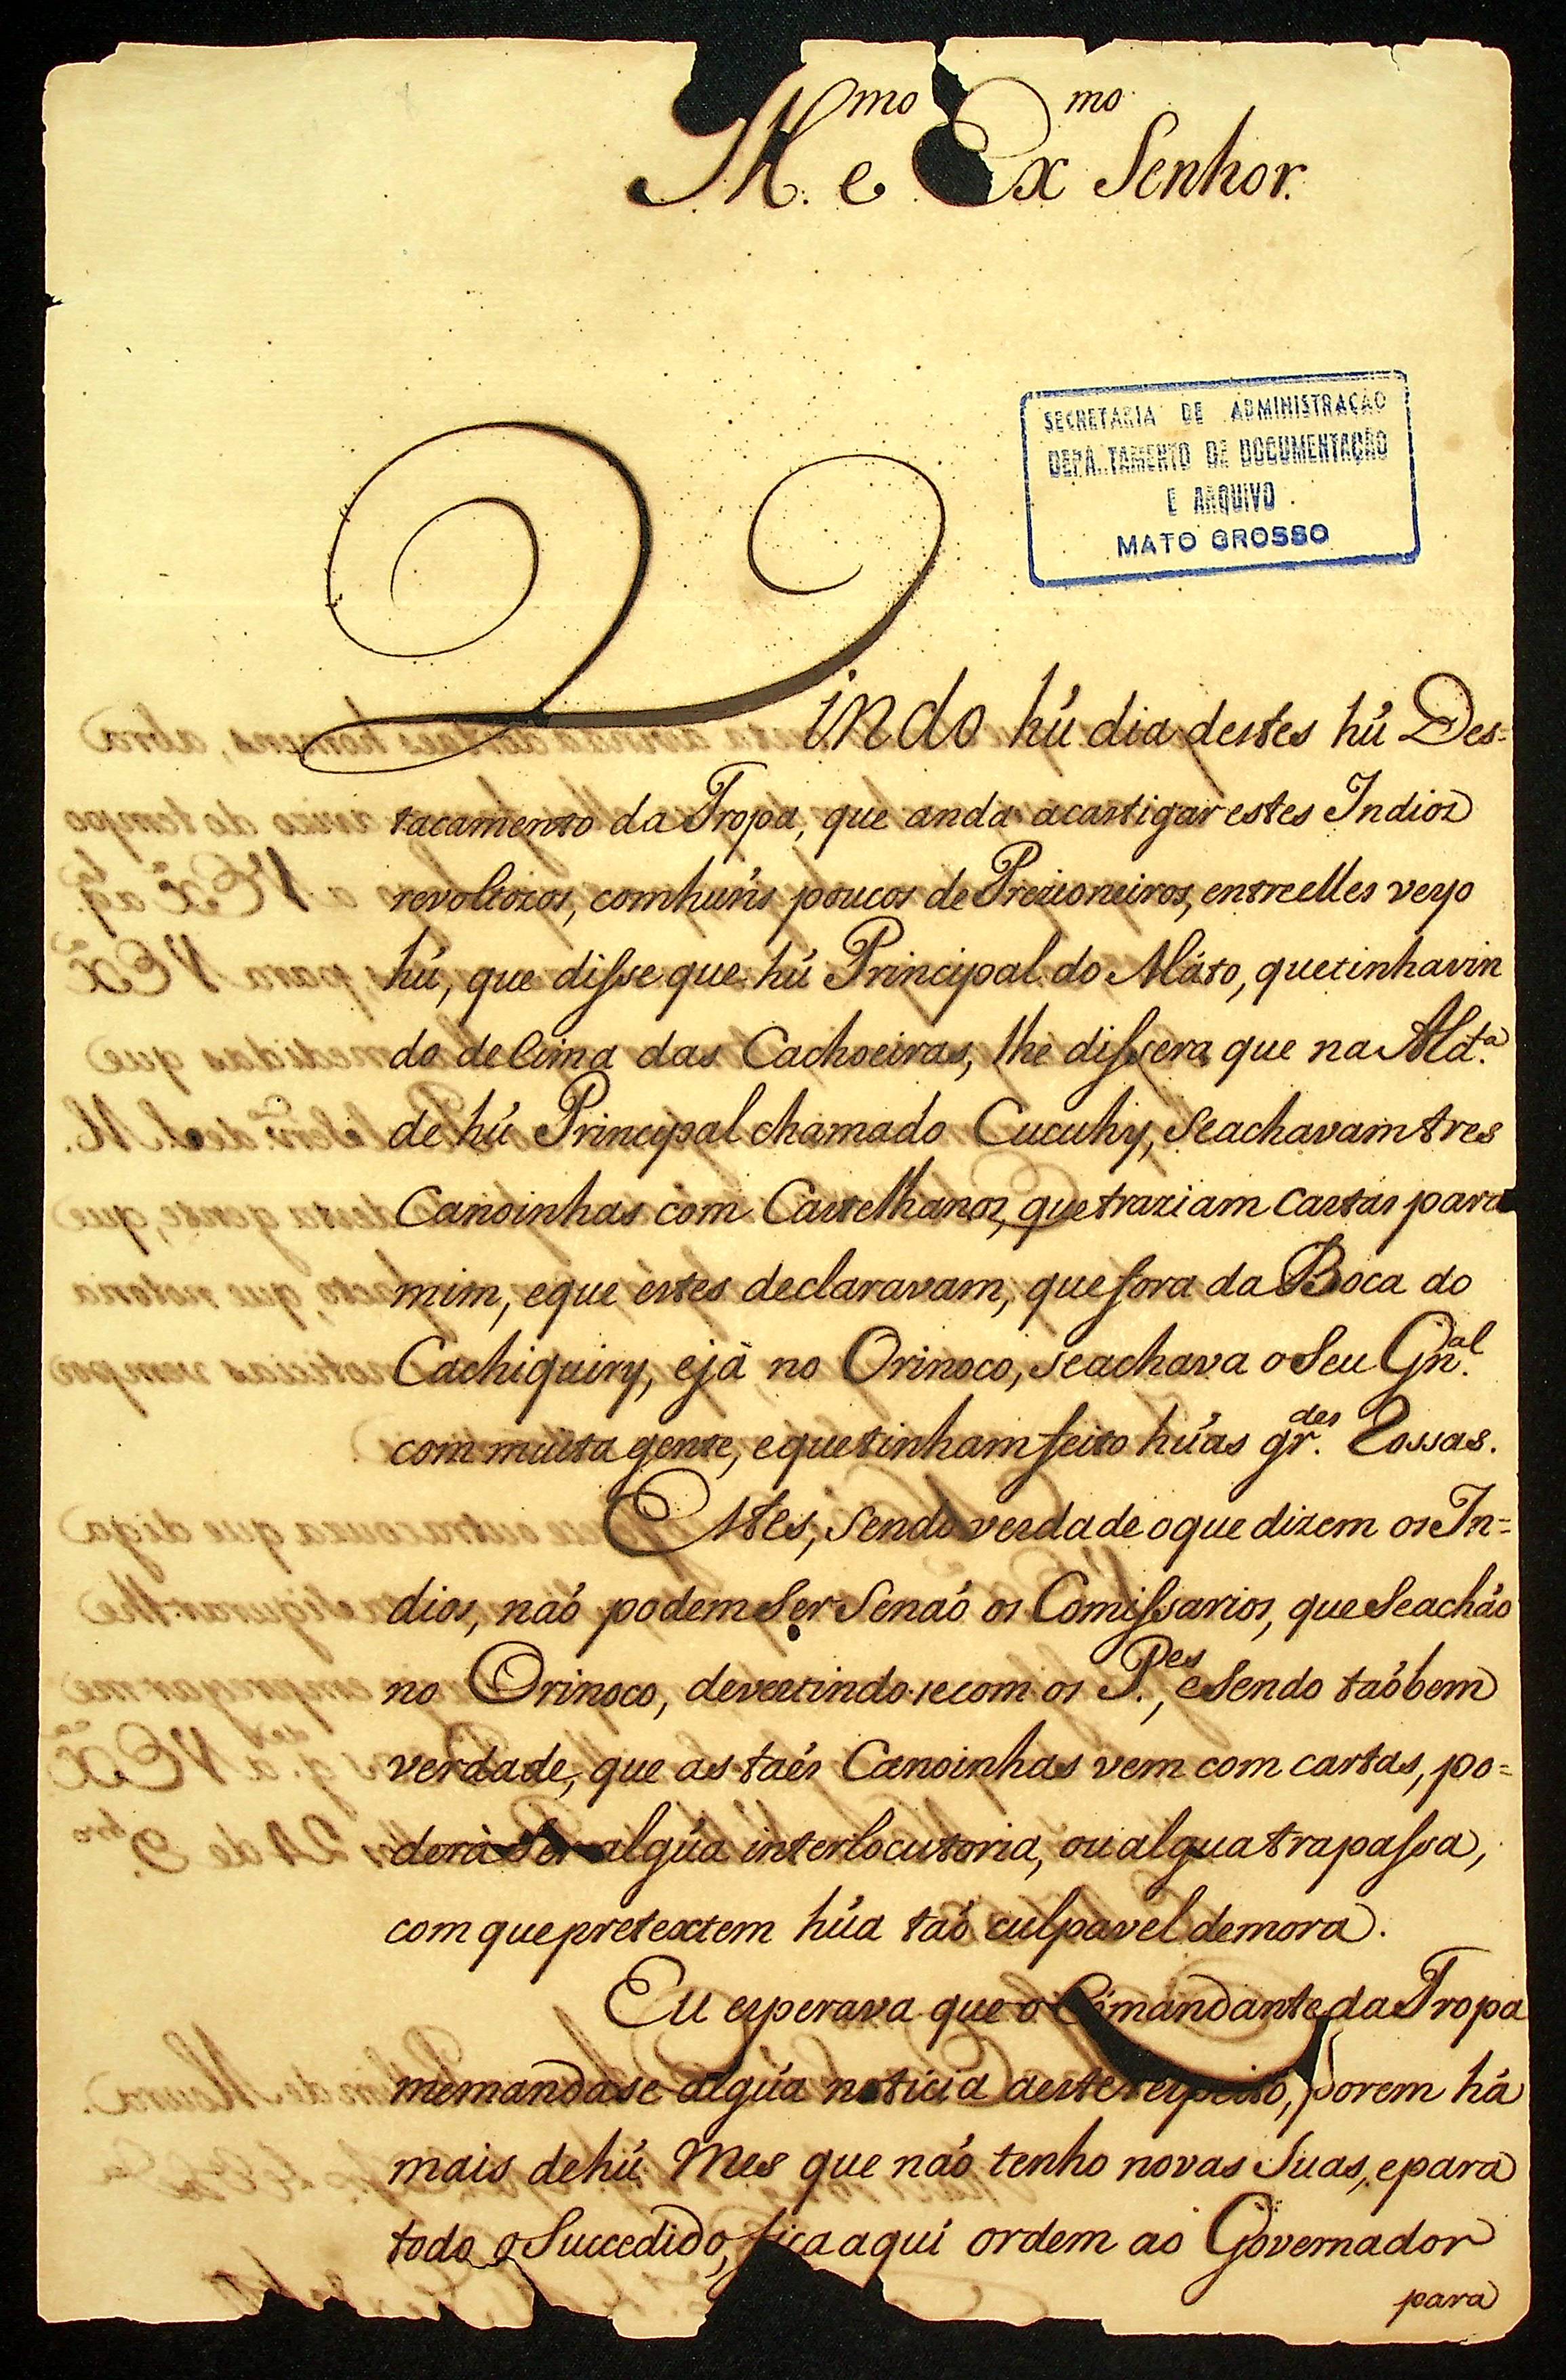 Ill.mo e Ex.mo Senhor.
SECRETARIA DE ADMINISTRAÇÃO
DEPARTAMENTO DE DOCUMENTAÇÃO
E ARQUIVO
MATO GROSSO
Vindo hũ dia destes hũ Des=
tacamento da Tropa, que anda acastigar estes Indios
revoltozos, comhuñs poucos de Prezioneiros, entre elles veyo
hũ, que disse que hũ Principal do Máto, quetinhavin
do de Cima das Cachoeiras, lhe dissera que na Ald.ª
de hũ Principal chamado Cucuhy, Seachavam tres
Canoinhas com Castelhanos, quetraziam Cartas para
mim, eque estes declaravam, quefora da Boca do
Cachiquiry, ejà no Orinoco, seachava o Seu Gn.al
com muita gente, equetinham feito hũas gr.des Rossas.
Estes, sendo verdade oque dizem os In=
dios, naó podem Ser Senaó os Comissarios, que Seachão
no Orinoco, devertindo-se com os P.es, e Sendo taóbem
verdade, que as taés Canoinhas vem com cartas, po=
derà Ser algũa interlocutoria, ou algua trapassa,
com que pretextem hũa taó culpavel demora.
Eu esperava que o Cómandante da Tropa
memandase algũa noticia aeste respeito, porem há
mais dehũ Mes que naó tenho novas Suas, epara
todo o Succedido, fica aqui ordem ao Governador
para